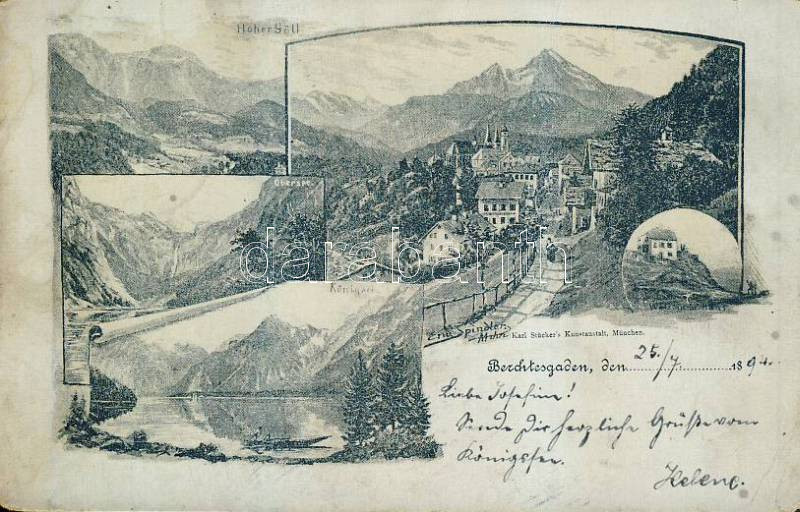 Hoher Göll
Obersee.
Königsee
darabanth
Erw. Spindler.
Karl Stücker's Kunstanstalt, München.
Berchtesgaden, den 25./7. 1894.
Liebe Josefine!
Sende Dir herzliche Grüße vom
Königssee.
Helene.